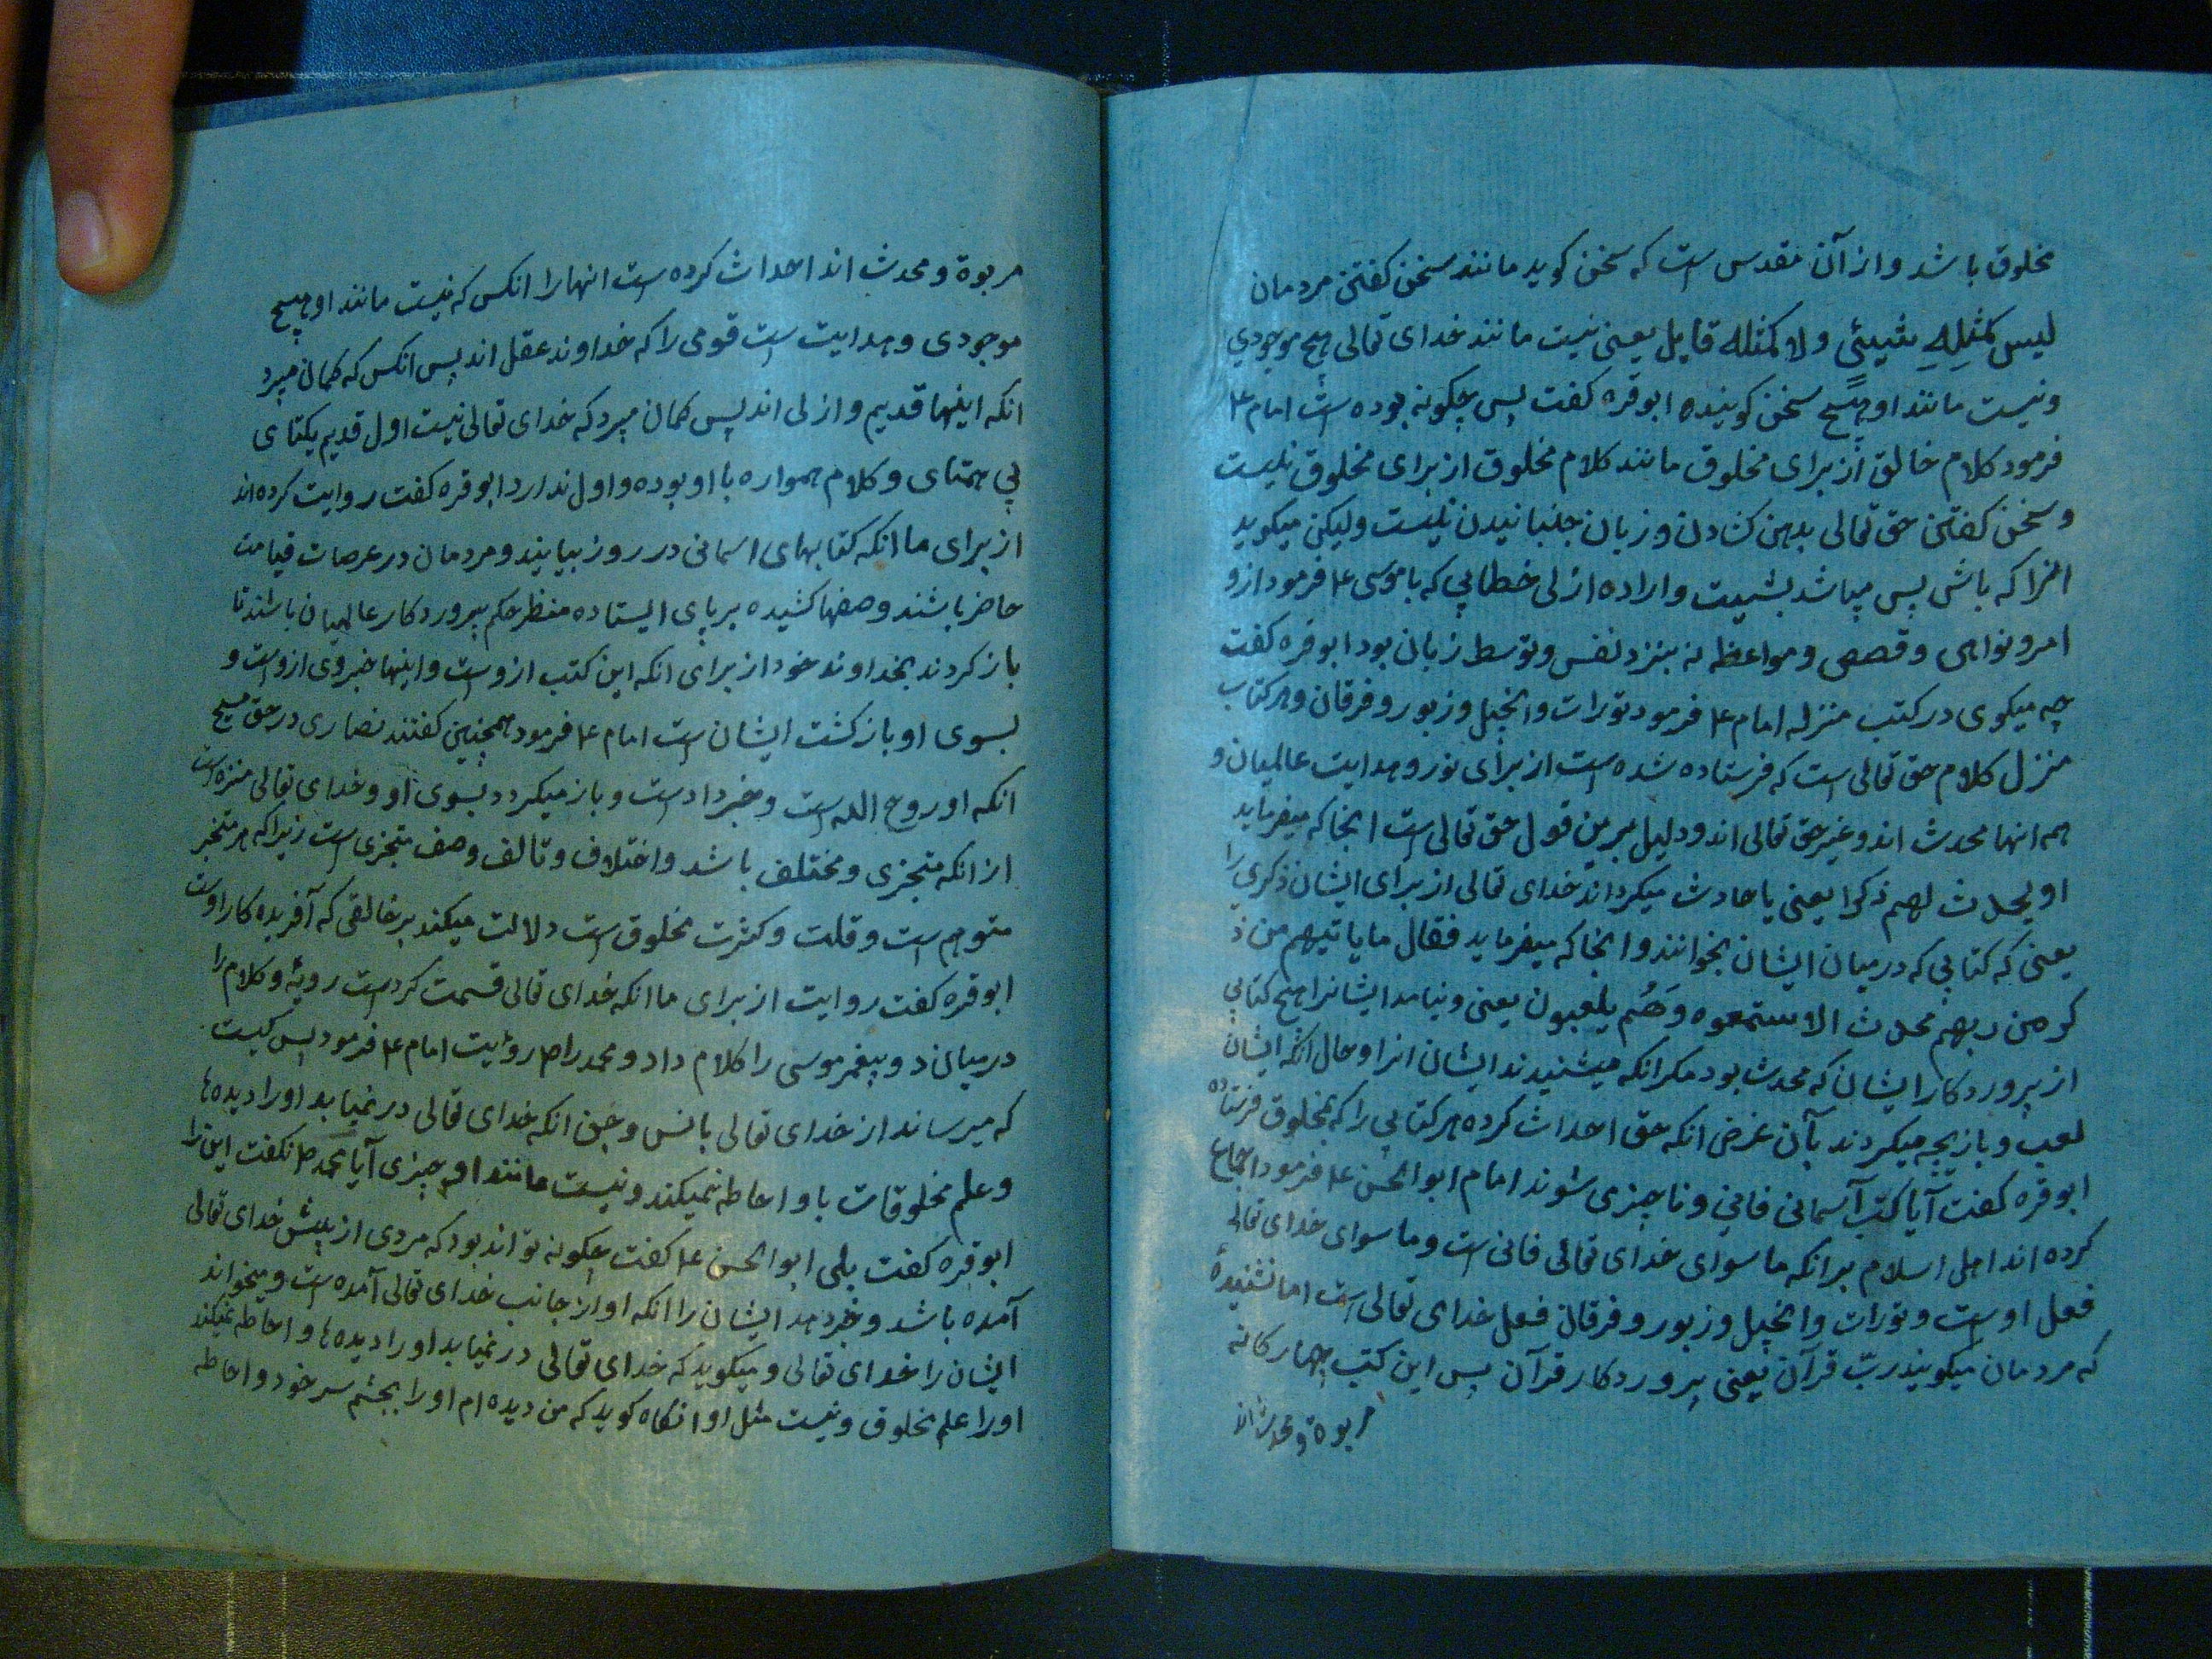 مخلوق باشد و از آن مقدس است که سخن کوید مانند سخن کفتن مردمان
لیس کمثلِهِ شیئی ولا کمثله قایل یعنی نیست مانند خدای تعالی هیچ موجودی
و نیست مانند او هیچ سخن کوینده ابوقره کفت پس چکونه بوده است امام ع
فرمود کلام خالق از برای مخلوق مانند کلام مخلوق از برای مخلوق نیست
و سخن کفتن حق تعالی بدهن کشادن و زبان جنبانیدن نیست ولیکن میکوید
انرا که باش پس میباشد بمشیت و اراده ازلی خطابی که با موسی ع فرمود از و
امر و نواهی و قصص و مواعظ نه بنزد نفس و توسط زبان بود ابوقره کفت
چه میکوی در کتب منزله امام ع فرمود تورات و انجیل و زبور و فرقان و هر کتاب
منزل کلام حق تعالی است که فرستاده شده است از برای نور و هدایت عالمیان و
همه انها محدث اند و غیر حق تعالی اند و دلیل برین قول حق تعالی است انجا که میفرماید
او یحدث لهم ذکرا یعنی یا حادث میکرداند خدای تعالی از برای ایشان ذکری را
یعنی که کتابی که در میان ایشان بخوانند و انجا که میفرماید فقال ما یاتیهم من ذ
کر من ربهم محدث الا ستمعوه وَهُم یلعبون یعنی و نیامد ایشانرا هیچ کتابی
از پروردکار ایشان که محدث بود مکر انکه میشنیدند ایشان انرا و حال انکه ایشان
لعب و بازیچه میکردند بآن غرض انکه حق احداث کرده هر کتابی را که بمخلوق فرستاده
ابوقره کفت آیا کتب آسمانی فانی و ناچیزی شوند امام ابوالحسن ع فرمود اجماع
کرده اند اهل اسلام بر انکه ما سوای خدای تعالی فانی است و ما سوای خدای تعالی
فعل اوست و تورات و انجیل و زبور و فرقان فعل خدای تعالی است اما نشنیدهٔ
که مردمان میکویند ربّ قرآن یعنی پروردکار قرآن پس این کتب چهارکانه
مربوة و محدث اند
مربوة و محدث اند احداث کرده است انها را انکس که نیست مانند او هیچ
موجودی و هدایت است قومی را که خداوند عقل اند پس انکس که کمان میبرد
انکه اینها قدیم و ازلی اند پس کمان میبرد که خدای تعالی نیست اول قدیم یکتای
بی همتای و کلام همواره با او بوده و اول ندارد ابوقره کفت روایت کرده اند
از برای ما انکه کتابهای اسمانی در روز بیایند و مردمان در عرصات قیامت
حاضر باشند و صفها کشیده بر پای ایستاده منظر حکم پروردکار عالمیان باشند تا
باز کردند بخداوند خود از برای انکه این کتب از وست و اینها جزوی از وست و
بسوی او باز کشت ایشان است امام ع فرمود همچنین کفتند نصاری در حق مسیح
انکه او روح الله است و خبر دادست و باز میکردد بسوی او و خدای تعالی منزه است
از انکه متجزی و مختلف باشد و اختلاف و تالف وصف متجزی است زیرا که هر متجز
متوهم است و قلت و کثرت مخلوق است دلالت میکند بر خالقی که آفریده کار اوست
ابوقره کفت روایت از برای ما انکه خدای تعالی قسمت کردست رویهٔ و کلام را
در میان دو پیغمبر موسی را کلام داد و محمد را ص روئیت امام ع فرمود پس کیست
که میرساند از خدای تعالی بانس و جن انکه خدای تعالی در نمیابد او را دیده ها
و علم مخلوقات باو احاطه نمیکند و نیست مانند او چیزی آیا محمد ص نکفت این را
ابوقره کفت بلی ابوالحسن ع کفت چکونه تواند بود که مردی از پیش خدای تعالی
آمده باشد و خبر دهد ایشان را انکه او از جانب خدای تعالی آمده است و میخواند
ایشان را خدای تعالی و میکوید که خدای تعالی در نمیابد او را دیده ها و احاطه نمیکند
او را علم مخلوق و نیست مثل او و انکاه کوید که من دیده ام او را بچشم سر خود و احاطه